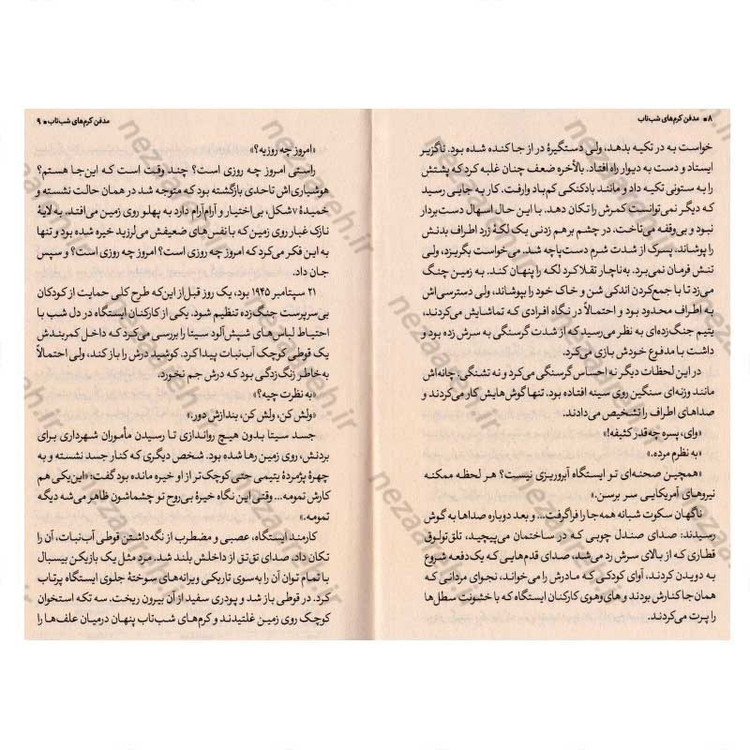 ۸ ■ مدفن کرم‌های شب‌تاب
خواست به در تکیه بدهد، ولی دستگیرهٔ در از جا کنده شده بود. ناگزیر
ایستاد و دست به دیوار راه افتاد. بالأخره ضعف چنان غلبه کرد که پشتش
را به ستونی تکیه داد و مانند بادکنکی کم‌باد وارفت. کار به جایی رسید
که دیگر نمی‌توانست کمرش را تکان دهد. با این حال اسهال دست‌بردار
نبود و بی‌وقفه می‌تاخت، در چشم برهم زدنی یک لکهٔ زرد اطراف بدنش
را پوشاند. پسرک از شدت شرم دست‌پاچه شد. می‌خواست بگریزد، ولی
تنش فرمان نمی‌برد. به‌ناچار تقلا کرد لکه را پنهان کند. به زمین چنگ
می‌زد تا با جمع‌کردن اندکی شن و خاک خود را بپوشاند، ولی دسترسی‌اش
به اطراف محدود بود و احتمالاً در نگاه افرادی که تماشایش می‌کردند،
یتیم جنگ‌زده‌ای به نظر می‌رسید که از شدت گرسنگی به سرش زده بود و
داشت با مدفوع خودش بازی می‌کرد.
در این لحظات دیگر نه احساس گرسنگی می‌کرد و نه تشنگی. چانه‌اش
مانند وزنه‌ای سنگین روی سینه افتاده بود. تنها گوش‌هایش کار می‌کردند و
صداهای اطراف را تشخیص می‌دادند.
«وای، پسره چه‌قدر کثیفه!»
«به نظرم مرده.»
«همچین صحنه‌ای تو ایستگاه آبروریزی نیست؟ هر لحظه ممکنه
نیروهای آمریکایی سر برسن.»
ناگهان سکوت شبانه همه‌جا را فراگرفت... و بعد دوباره صداها به گوش
رسیدند: صدای صندل چوبی که در ساختمان می‌پیچید، تلق‌تولوق
قطاری که از بالای سرش رد می‌شد، صدای قدم‌هایی که یک‌دفعه شروع
به دویدن کردند، آوای کودکی که مادرش را می‌خواند، نجوای مردانی که
همان جا کنارش بودند و های‌وهوی کارکنان ایستگاه که با خشونت سطل‌ها
را پرت می‌کردند.
مدفن کرم‌های شب‌تاب ■ ۹
«امروز چه روزیه؟»
راستی امروز چه روزی است؟ چند وقت است که این‌جا هستم؟
هوشیاری‌اش تا حدی بازگشته بود که متوجه شد در همان حالت نشسته و
خمیدهٔ ∨شکل، بی‌اختیار و آرام‌آرام دارد به پهلو روی زمین می‌افتد. به لایهٔ
نازک غبار روی زمین که با نفس‌های ضعیفش می‌لرزید خیره شده بود و تنها
به این فکر می‌کرد که امروز چه روزی است؟ امروز چه روزی است؟ و سپس
جان داد.
۲۱ سپتامبر ۱۹۴۵ بود، یک روز قبل از این‌که طرح کلی حمایت از کودکان
بی‌سرپرست جنگ‌زده تنظیم شود. یکی از کارکنان ایستگاه در دل شب با
احتیاط لباس‌های شپش‌آلود سیتا را بررسی می‌کرد که داخل کمربندش
یک قوطی کوچک آب‌نبات پیدا کرد. کوشید درش را باز کند، ولی احتمالاً
به خاطر زنگ‌زدگی بود که درش جم نخورد.
«به نظرت چیه؟»
«ولش کن، ولش کن، بندازش دور.»
جسد سیتا بدون هیچ رواندازی تا رسیدن مأموران شهرداری برای
بردنش، روی زمین رها شده بود. شخص دیگری که کنار جسد نشسته و به
چهرهٔ پژمردهٔ یتیمی حتی کوچک‌تر از او خیره مانده بود گفت: «این یکی هم
کارش تمومه... وقتی این نگاه خیرهٔ بی‌روح تو چشماشون ظاهر می‌شه دیگه
تمومه.»
کارمند ایستگاه، عصبی و مضطرب از نگه‌داشتن قوطی آب‌نبات، آن را
تکان داد. صدای تق‌تق از داخلش بلند شد. مرد مثل یک بازیکن بیسبال
با تمام توان آن را به‌سوی تاریکی ویرانه‌های سوختهٔ جلوی ایستگاه پرتاب
کرد. در قوطی باز شد و پودری سفید از آن بیرون ریخت. سه تکه استخوان
کوچک روی زمین غلتیدند و کرم‌های شب‌تاب پنهان در میان علف‌ها را
nezaameh.ir